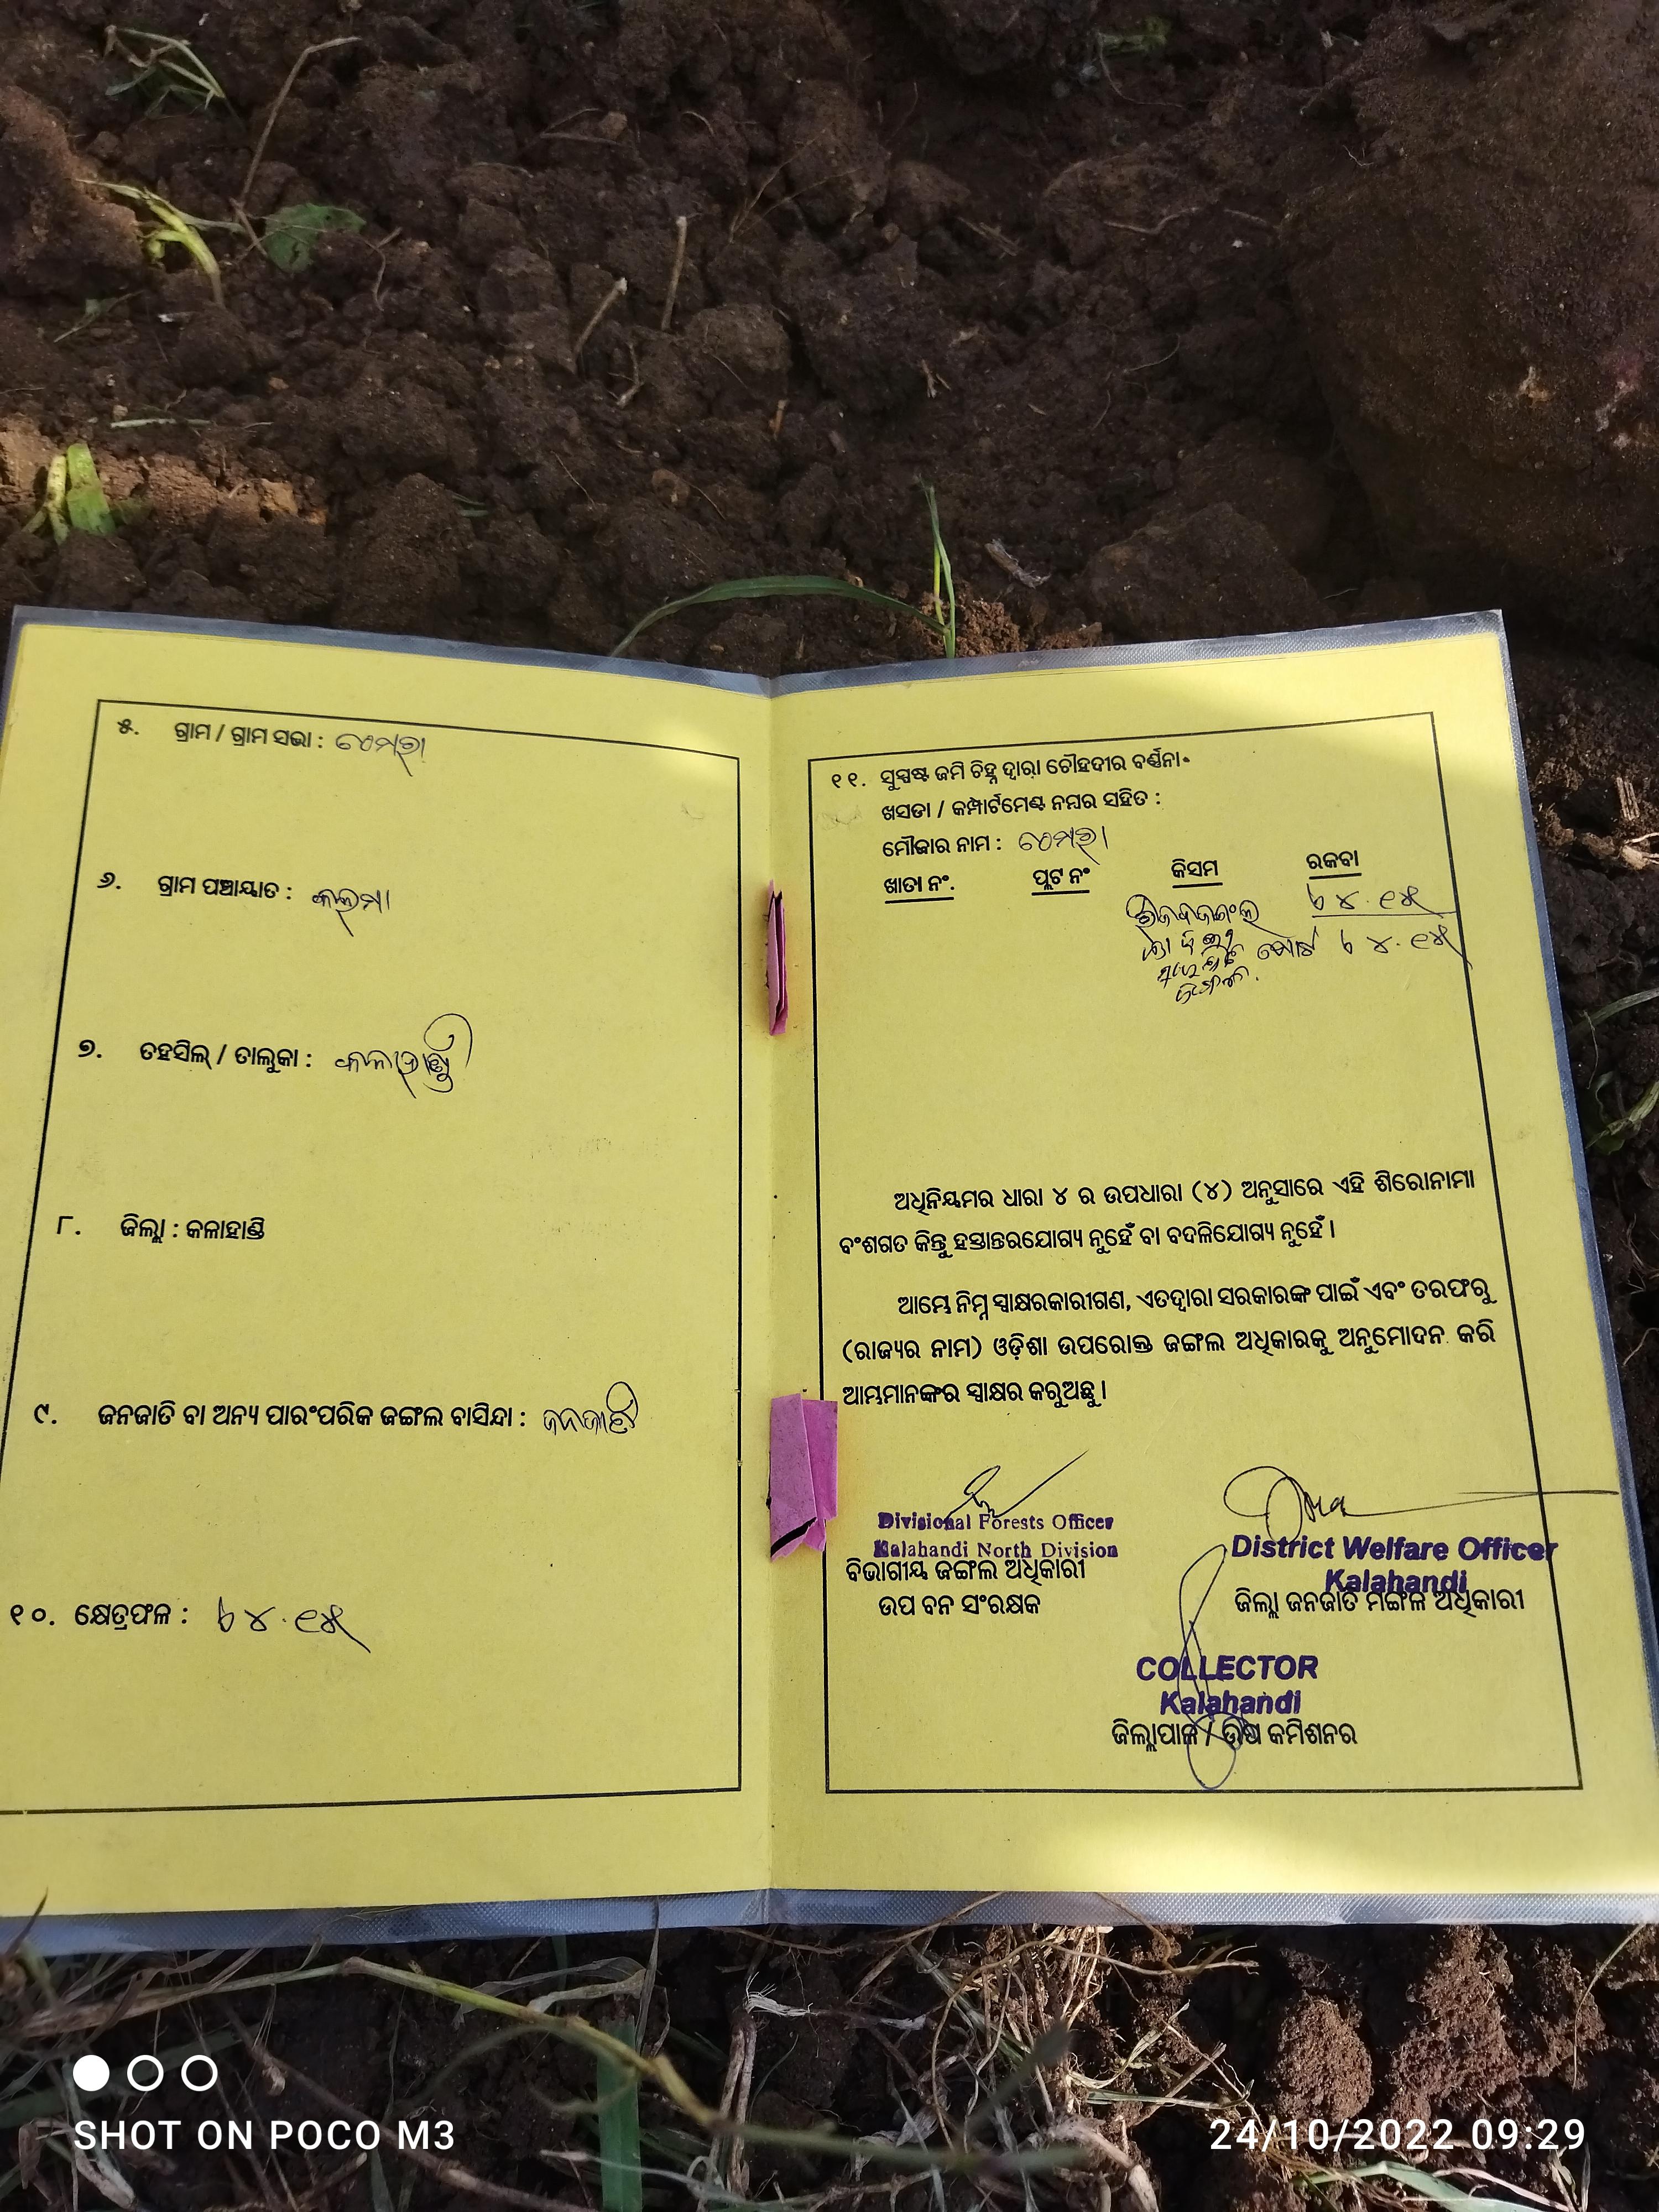 ୫. ଗ୍ରାମ / ଗ୍ରାମ ସଭା : ଟେମରା
୬. ଗ୍ରାମ ପଞ୍ଚାୟାତ : କଲମା
୭. ତହସିଲ୍ / ତାଲୁକା : କଳାହାଣ୍ଡି
୮. ଜିଲ୍ଲା : କଳାହାଣ୍ଡି
୯. ଜନଜାତି ବା ଅନ୍ୟ ପାରଂପରିକ ଜଙ୍ଗଲ ବାସିନ୍ଦା : ଜନଜାତି
୧୦. କ୍ଷେତ୍ରଫଳ :
୧୧. ସୁସ୍ପଷ୍ଟ ଜମି ଚିହ୍ନ ଦ୍ଵାରା ଚୌହଦୀର ବର୍ଣ୍ଣନା
ଖସଡା / କମ୍ପାର୍ଟମେଣ୍ଟ ନମ୍ବର ସହିତ :
ମୌଜାର ନାମ : ଟେମରା
ଖାତା ନଂ. ପ୍ଲଟ ନଂ କିସମ ରକବା
ମୋଟ
ଅଧିନିୟମର ଧାରା ୪ ର ଉପଧାରା (୪) ଅନୁସାରେ ଏହି ଶିରୋନାମା
ବଂଶଗତ କିନ୍ତୁ ହସ୍ତାନ୍ତରଯୋଗ୍ୟ ନୁହେଁ ବା ବଦଳିଯୋଗ୍ୟ ନୁହେଁ ।
ଆମ୍ଭେ ନିମ୍ନ ସ୍ଵାକ୍ଷରକାରୀଗଣ, ଏତଦ୍ଵାରା ସରକାରଙ୍କ ପାଇଁ ଏବଂ ତରଫରୁ
(ରାଜ୍ୟର ନାମ) ଓଡ଼ିଶା ଉପରୋକ୍ତ ଜଙ୍ଗଲ ଅଧିକାରକୁ ଅନୁମୋଦନ କରି
ଆମ୍ଭମାନଙ୍କର ସ୍ଵାକ୍ଷର କରୁଅଛୁ ।
Divisional Forests Officer
Kalahandi North Division
ବିଭାଗୀୟ ଜଙ୍ଗଲ ଅଧିକାରୀ
ଉପ ବନ ସଂରକ୍ଷକ
District Welfare Officer
Kalahandi
ଜିଲ୍ଲା ଜନଜାତି ମଙ୍ଗଳ ଅଧିକାରୀ
COLLECTOR
Kalahandi
ଜିଲ୍ଲାପାଳ / କମିଶନର
SHOT ON POCO M3
24/10/2022 09:29